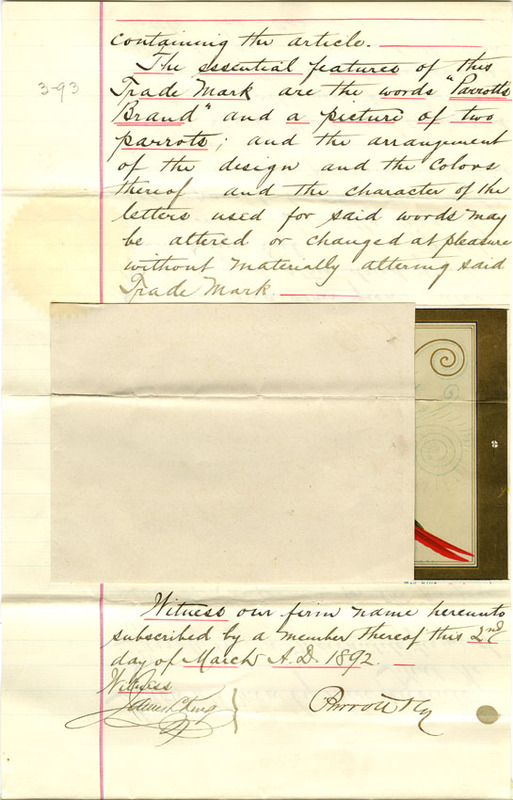 containing the article.
The essential features of this
3-93
Trade Mark are the words "Parrotts
Brand" and a picture of two
parrots; and the arrangement
of the design and the colors
thereof and the character of the
letters used for said words may
be altered or changed at pleasure
without materially altering said
Trade Mark.
Witness our firm name hereunto
subscribed by a member thereof this 2nd
day of March A.D. 1892.
Witness
James King
Parrott & Co